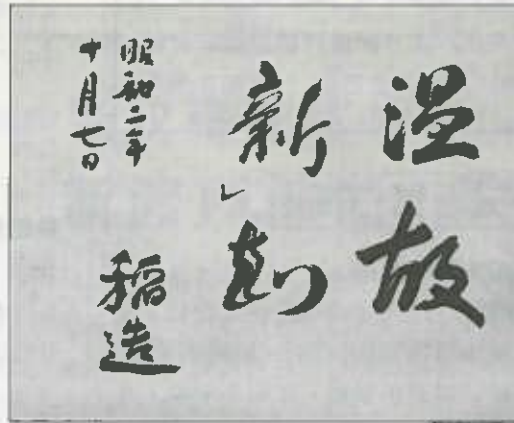 温故
新レ知
昭和二年
十月七日
稲造